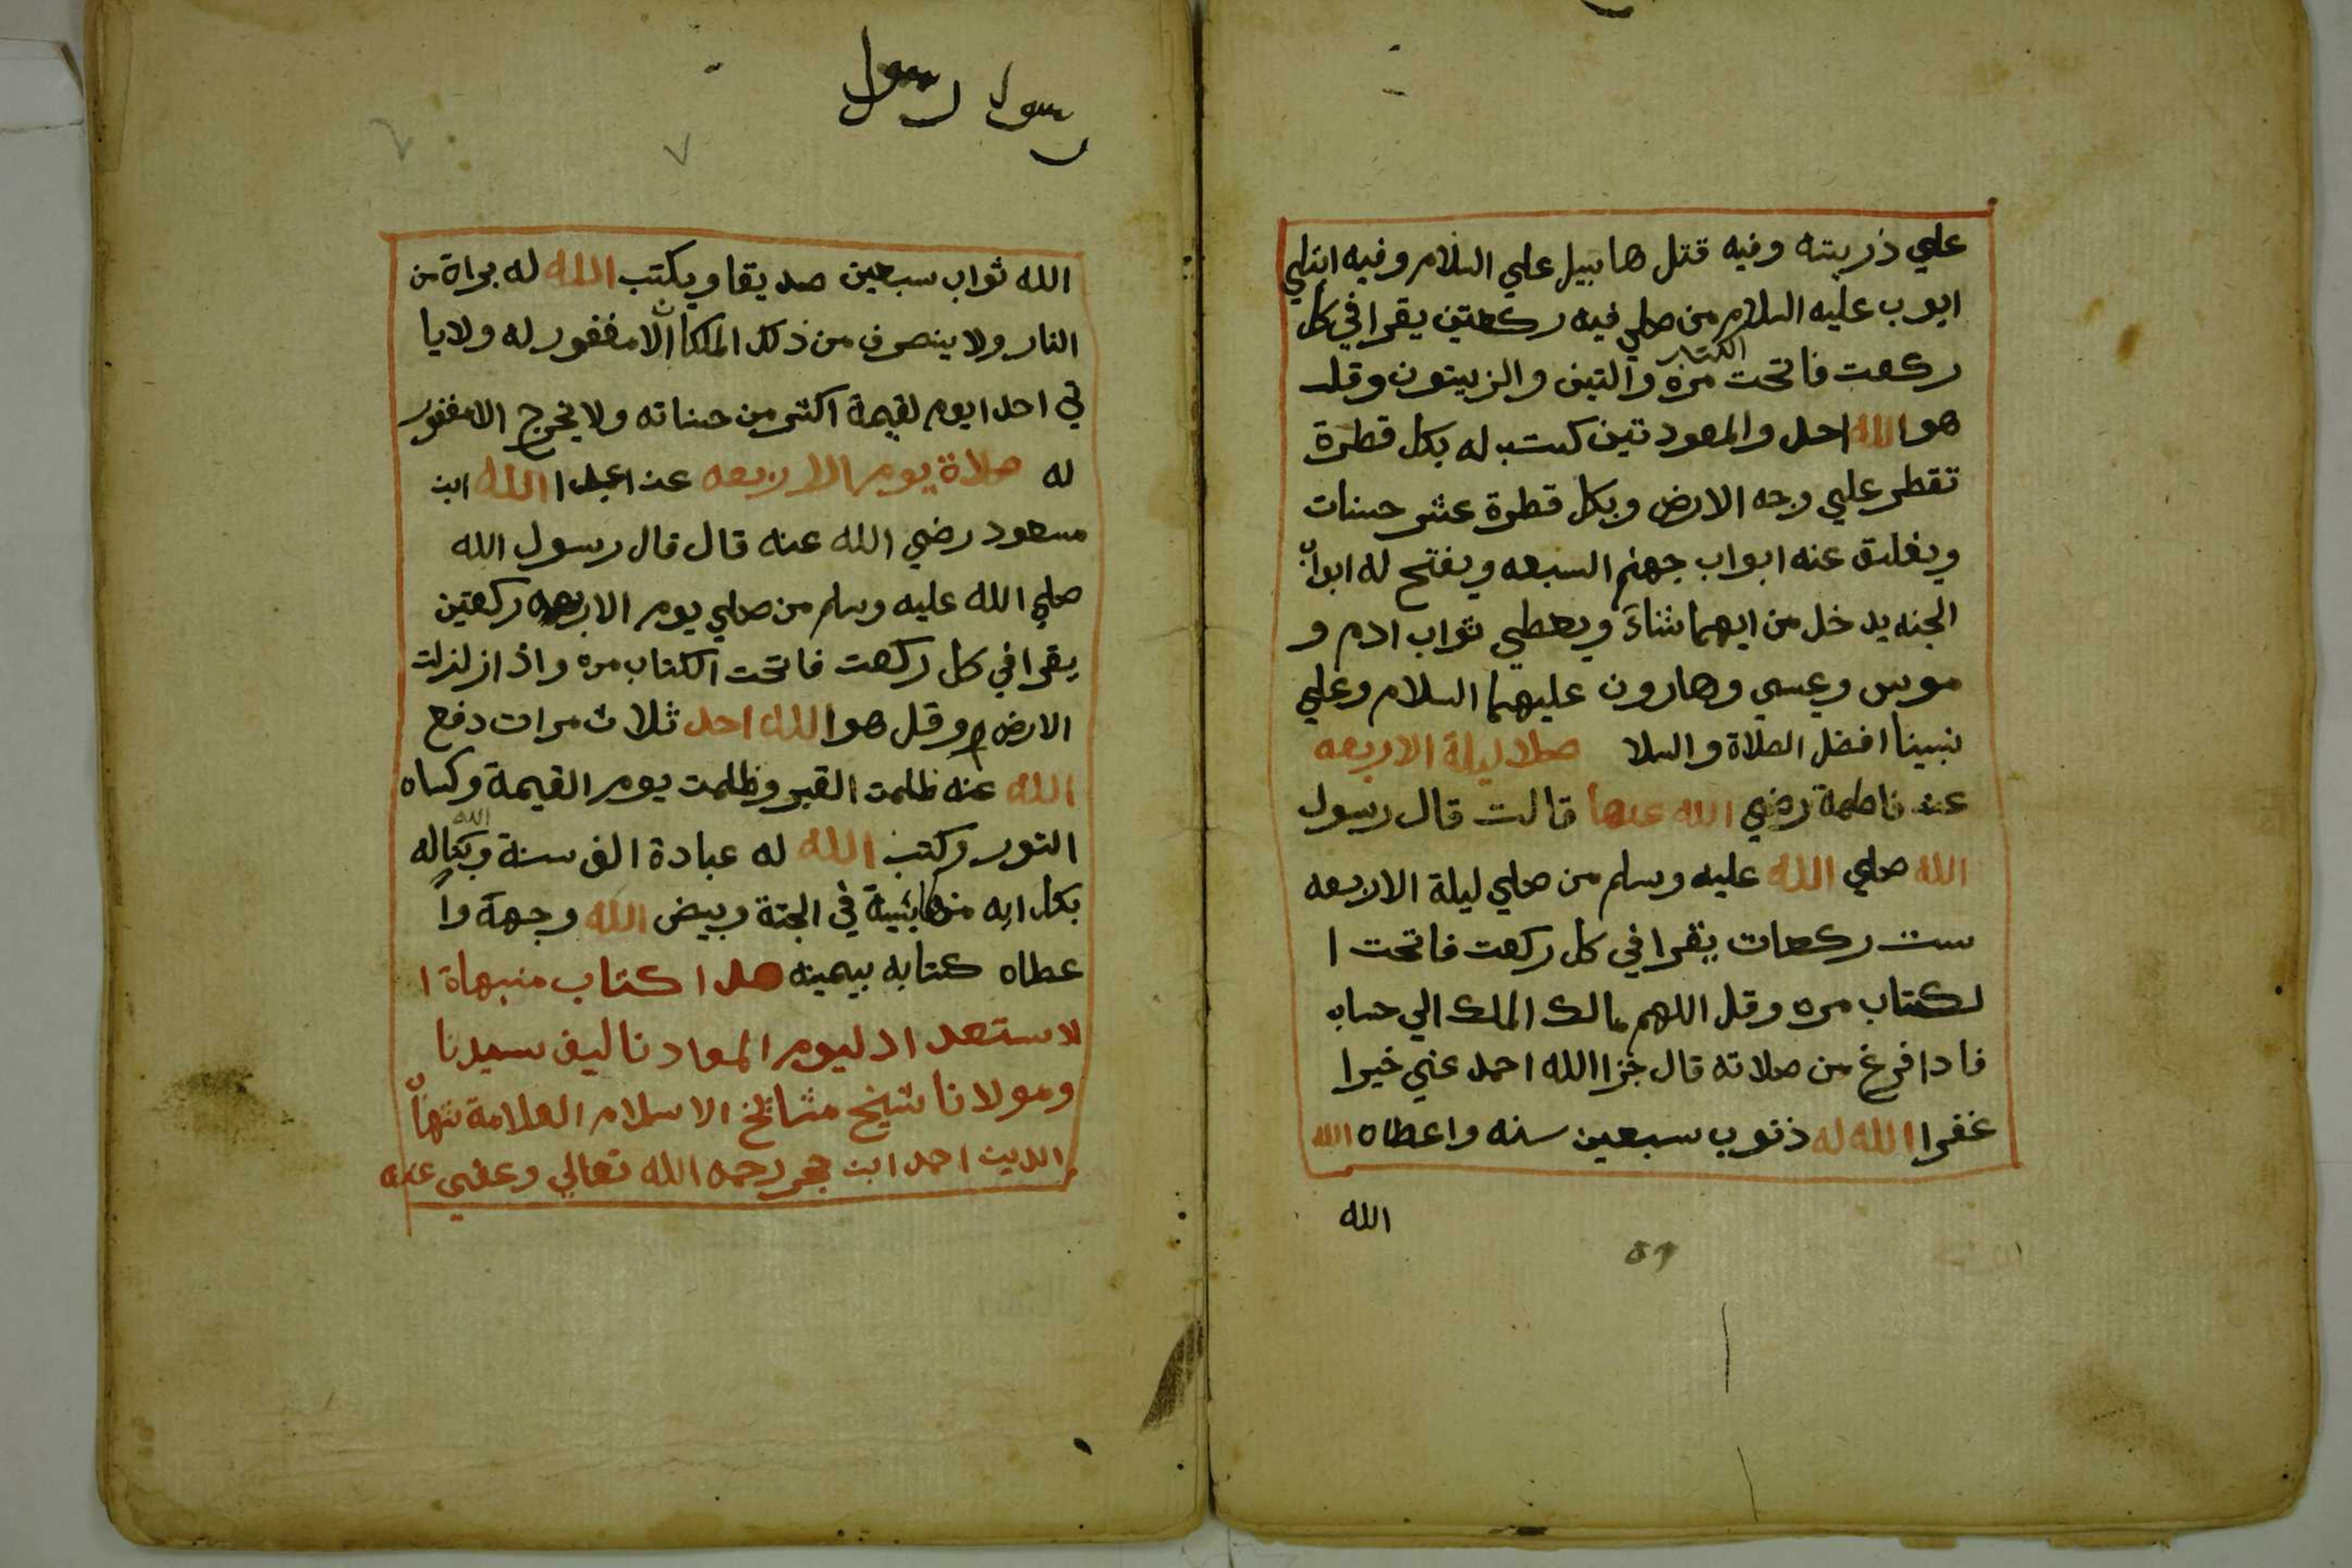 علي ذريته وفيه قتل هابيل علي السلام وفيه ابتلي
ايوب عليه السلام من صلي فيه ركعتين يقرا في كل
ركعت فاتحت الكتاب مرة والتين والزيتون وقل
هو الله احد والمعودتين كتب له بكل قطرة
تقطر علي وجه الارض وبكل قطرة عشر حسنات
ويغلق عنه ابواب جهنم السبعه ويفتح له ابواب
الجنه يدخل من ايهما شاءَ ويعطي ثواب ادم و
موسى وعيسي وهارون عليهما السلام وعلي
نبينا افضل الصلاة والسلا صلا ليلة الاربعه
عن فاطمة رضي الله عنها قالت قال رسول
الله صلي الله عليه وسلم من صلي ليلة الاربعه
ست ركعات يقرا في كل ركعت فاتحت ا
لكتاب مره وقل اللهم مالك الملك الي حساب
فادا فرغ من صلاته قال جزا الله احمد عني خيرا
غفرا الله له ذنوب سبعين سنه واعطاه الله
الله
٥٩
رسول رسول
الله ثواب سبعين صديقا ويكتب الله له براة من
النار ولا ينصرف من ذلك المكان الا مغفور له ولا يا
تي احد ايوم لقيمة اكثر من حسناته ولا يخرج الا مغفور
له صلاة يوم الاربعه عن اعبدا الله ابن
مسعود رضي الله عنه قال قال رسول الله
صلي الله عليه وسلم من صلي يوم الاربعه ركعتين
يقرا في كل ركعت فاتحت الكتاب مره واذا زلزلت
الارض م وقل هو الله احد ثلاث مرات دفع
الله عنه ظلمت القبر وظلمت يوم القيمة وكساه
النور وكتب الله له عبادة الف سنة الله له
بكل ايه منها في الجنة وبيض الله وجهة وا
عطاه كتابه بيمينه هدا كتاب منبهاة ا
لاستعداد ليوم المعاد تاليف سيدنا
ومولانا شيخ مشائخ الاسلام العلامة شهاب
الدين احمد ابن حجر رحمه الله تعالي وعفى عنه